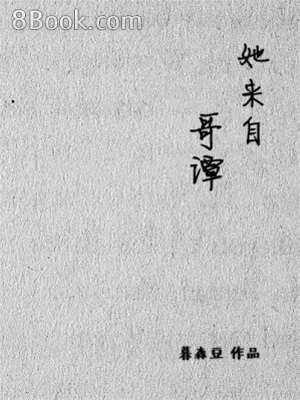 8Book.com
她来自
哥谭
暮森豆 作品